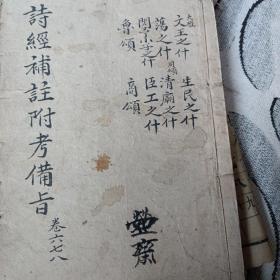 大雅
文王之什 生民之什
蕩之什 周頌 清廟之什
閔予小子之什 臣工之什
魯頌 商頌
詩經補註附考備旨 卷六七八